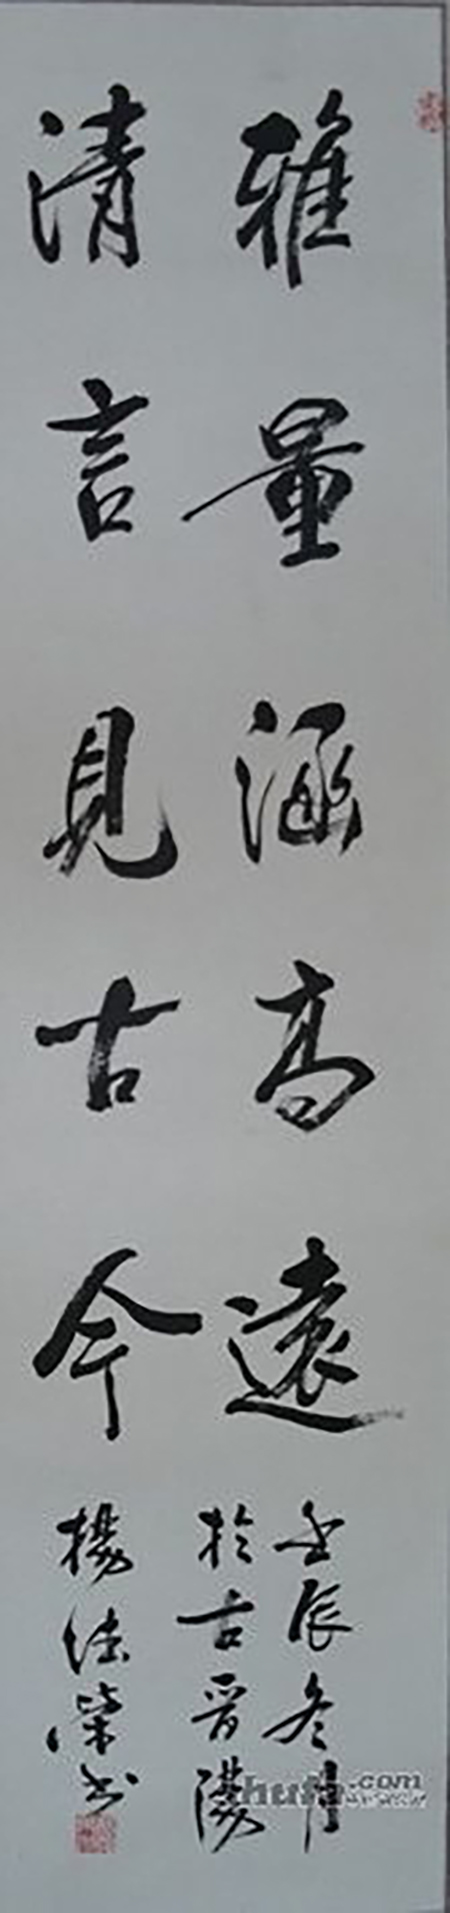 雅量涵高遠
清言見古今
壬辰冬月
於古晋陽
楊德榮书